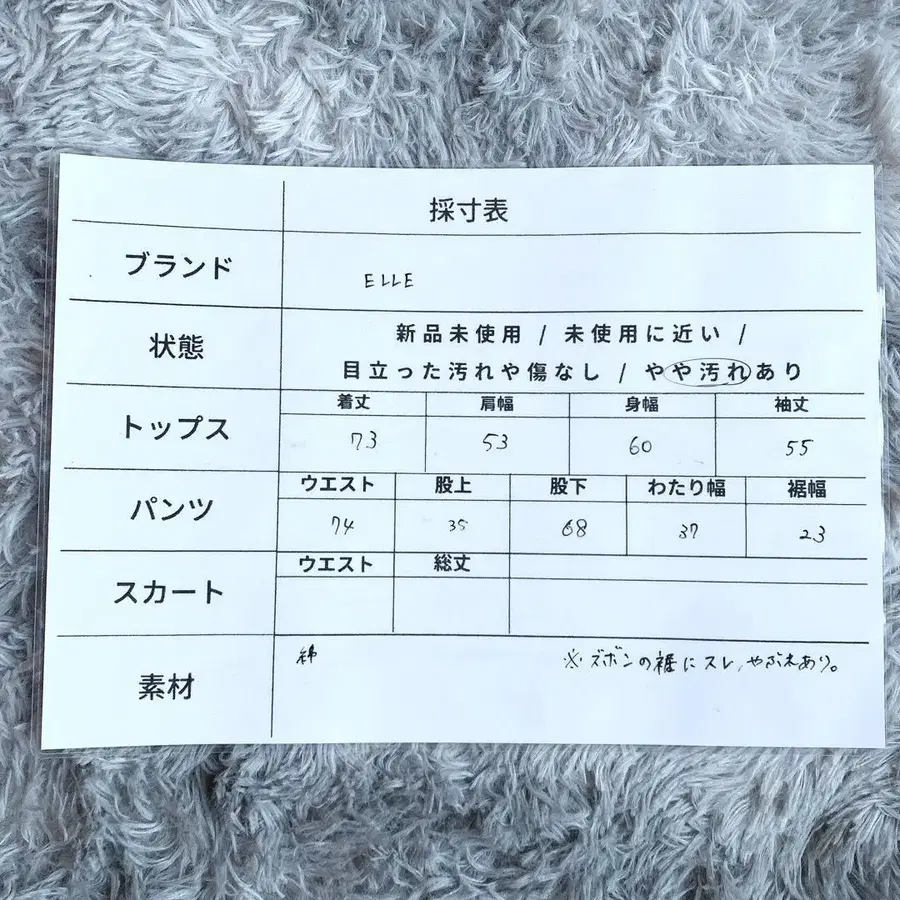 採寸表
ブランド
ELLE
状態
新品未使用 / 未使用に近い /
目立った汚れや傷なし / やや汚れあり
トップス
着丈 肩幅 身幅 袖丈
73 53 60 55
パンツ
ウエスト 股上 股下 わたり幅 裾幅
74 35 68 37 23
スカート
ウエスト 総丈
素材
綿
※ズボンの裾にスレ,やぶれあり。